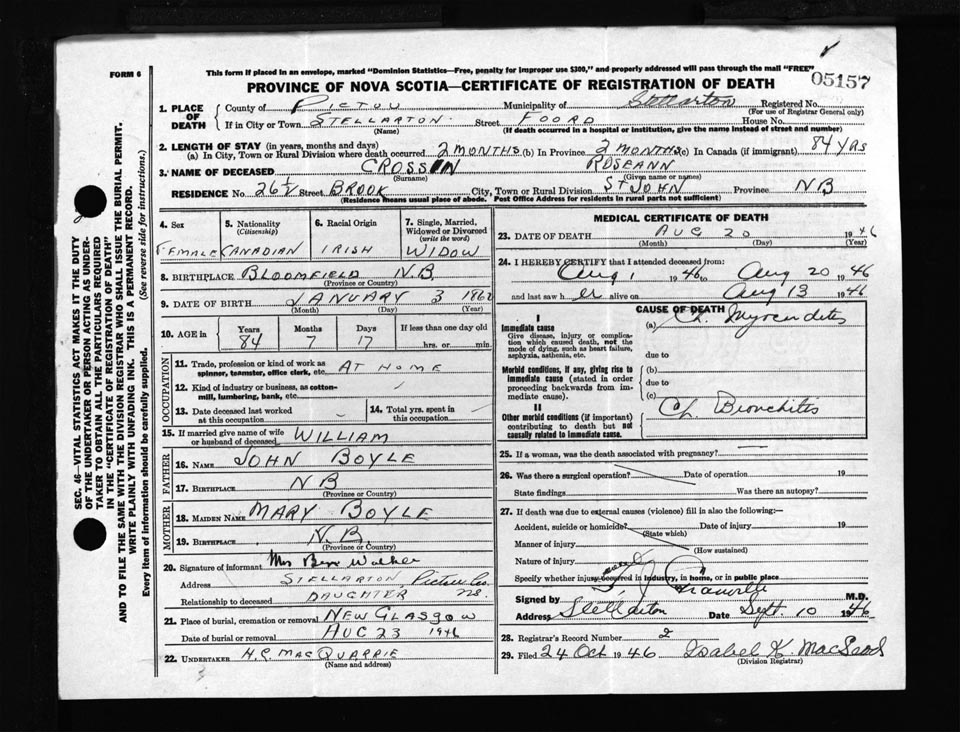 This form if placed in an envelope, marked "Dominion Statistics—Free, penalty for improper use $300," and properly addressed will pass through the mail "FREE"
FORM 6
PROVINCE OF NOVA SCOTIA—CERTIFICATE OF REGISTRATION OF DEATH
05157
1. PLACE OF DEATH
County of PICTOU Municipality of Stellarton Registered No.
(For use of Registrar General only)
If in City or Town STELLARTON. Street FOORD House No.
(Name) (If death occurred in a hospital or institution, give the name instead of street and number)
2. LENGTH OF STAY (in years, months and days)
(a) In City, Town or Rural Division where death occurred 2 MONTHS (b) In Province 2 MONTHS (c) In Canada (if immigrant) 84 YRS
3. NAME OF DECEASED CROSSIN ROSEANN
(Surname) (Given name or names)
RESIDENCE No 26½ Street BROOK City, Town or Rural Division ST JOHN Province NB
(Residence means usual place of abode. Post Office Address for residents in rural parts not sufficient)
4. Sex
FEMALE
5. Nationality (Citizenship)
CANADIAN
6. Racial Origin
IRISH
7. Single, Married, Widowed or Divorced (write the word)
WIDOW
8. BIRTHPLACE BLOOMFIELD N.B
(Province or Country)
9. DATE OF BIRTH JANUARY 3 1862
(Month) (Day) (Year)
10. AGE in
Years Months Days If less than one day old
84 7 17 hrs. or min.
OCCUPATION
11. Trade, profession or kind of work as spinner, teamster, office clerk, etc. AT HOME
12. Kind of industry or business, as cotton-mill, lumbering, bank, etc.
13. Date deceased last worked at this occupation
14. Total yrs. spent in this occupation
15. If married give name of wife or husband of deceased WILLIAM
FATHER
16. NAME JOHN BOYLE
17. BIRTHPLACE NB
(Province or Country)
MOTHER
18. MAIDEN NAME MARY BOYLE
19. BIRTHPLACE N.B.
(Province or Country)
20. Signature of informant Mrs Walker
Address STELLARTON Pictou Co. N.S.
Relationship to deceased DAUGHTER
21. Place of burial, cremation or removal NEW GLASGOW
Date of burial or removal AUG 23 1946
22. UNDERTAKER H.P. MACQUARRIE
(Name and address)
MEDICAL CERTIFICATE OF DEATH
23. DATE OF DEATH AUG 20 1946
(Month) (Day) (Year)
24. I HEREBY CERTIFY that I attended deceased from:
Aug 1 1946 to Aug 20 1946
and last saw h er alive on Aug 13 1946
CAUSE OF DEATH
I
Immediate cause
Give disease, injury or complication which caused death, not the mode of dying, such as heart failure, asphyxia, asthenia, etc.
(a) Ch. Myocarditis
due to
Morbid conditions, if any, giving rise to immediate cause (stated in order proceeding backwards from immediate cause).
(b)
due to
(c)
II
Other morbid conditions (if important) contributing to death but not causally related to immediate cause.
Ch. Bronchitis
25. If a woman, was the death associated with pregnancy?
26. Was there a surgical operation? Date of operation 19
State findings Was there an autopsy?
27. If death was due to external causes (violence) fill in also the following:—
Accident, suicide or homicide? Date of injury 19
(State which)
Manner of injury
(How sustained)
Nature of injury
Specify whether injury occurred in industry, in home, or in public place
Signed by Granville M.D.
Stellarton Date Sept. 10 1946
28. Registrar's Record Number 2
29. Filed 24 Oct 1946 Isabel K. MacLeod
(Division Registrar)
SEC. 46—VITAL STATISTICS ACT MAKES IT THE DUTY
OF THE UNDERTAKER OR PERSON ACTING AS UNDER-
TAKER TO OBTAIN ALL THE PARTICULARS REQUIRED
IN THE "CERTIFICATE OF REGISTRATION OF DEATH"
AND TO FILE THE SAME WITH THE DIVISION REGISTRAR WHO SHALL ISSUE THE BURIAL PERMIT.
WRITE PLAINLY WITH UNFADING INK. THIS IS A PERMANENT RECORD.
Every item of information should be carefully supplied. (See reverse side for instructions.)